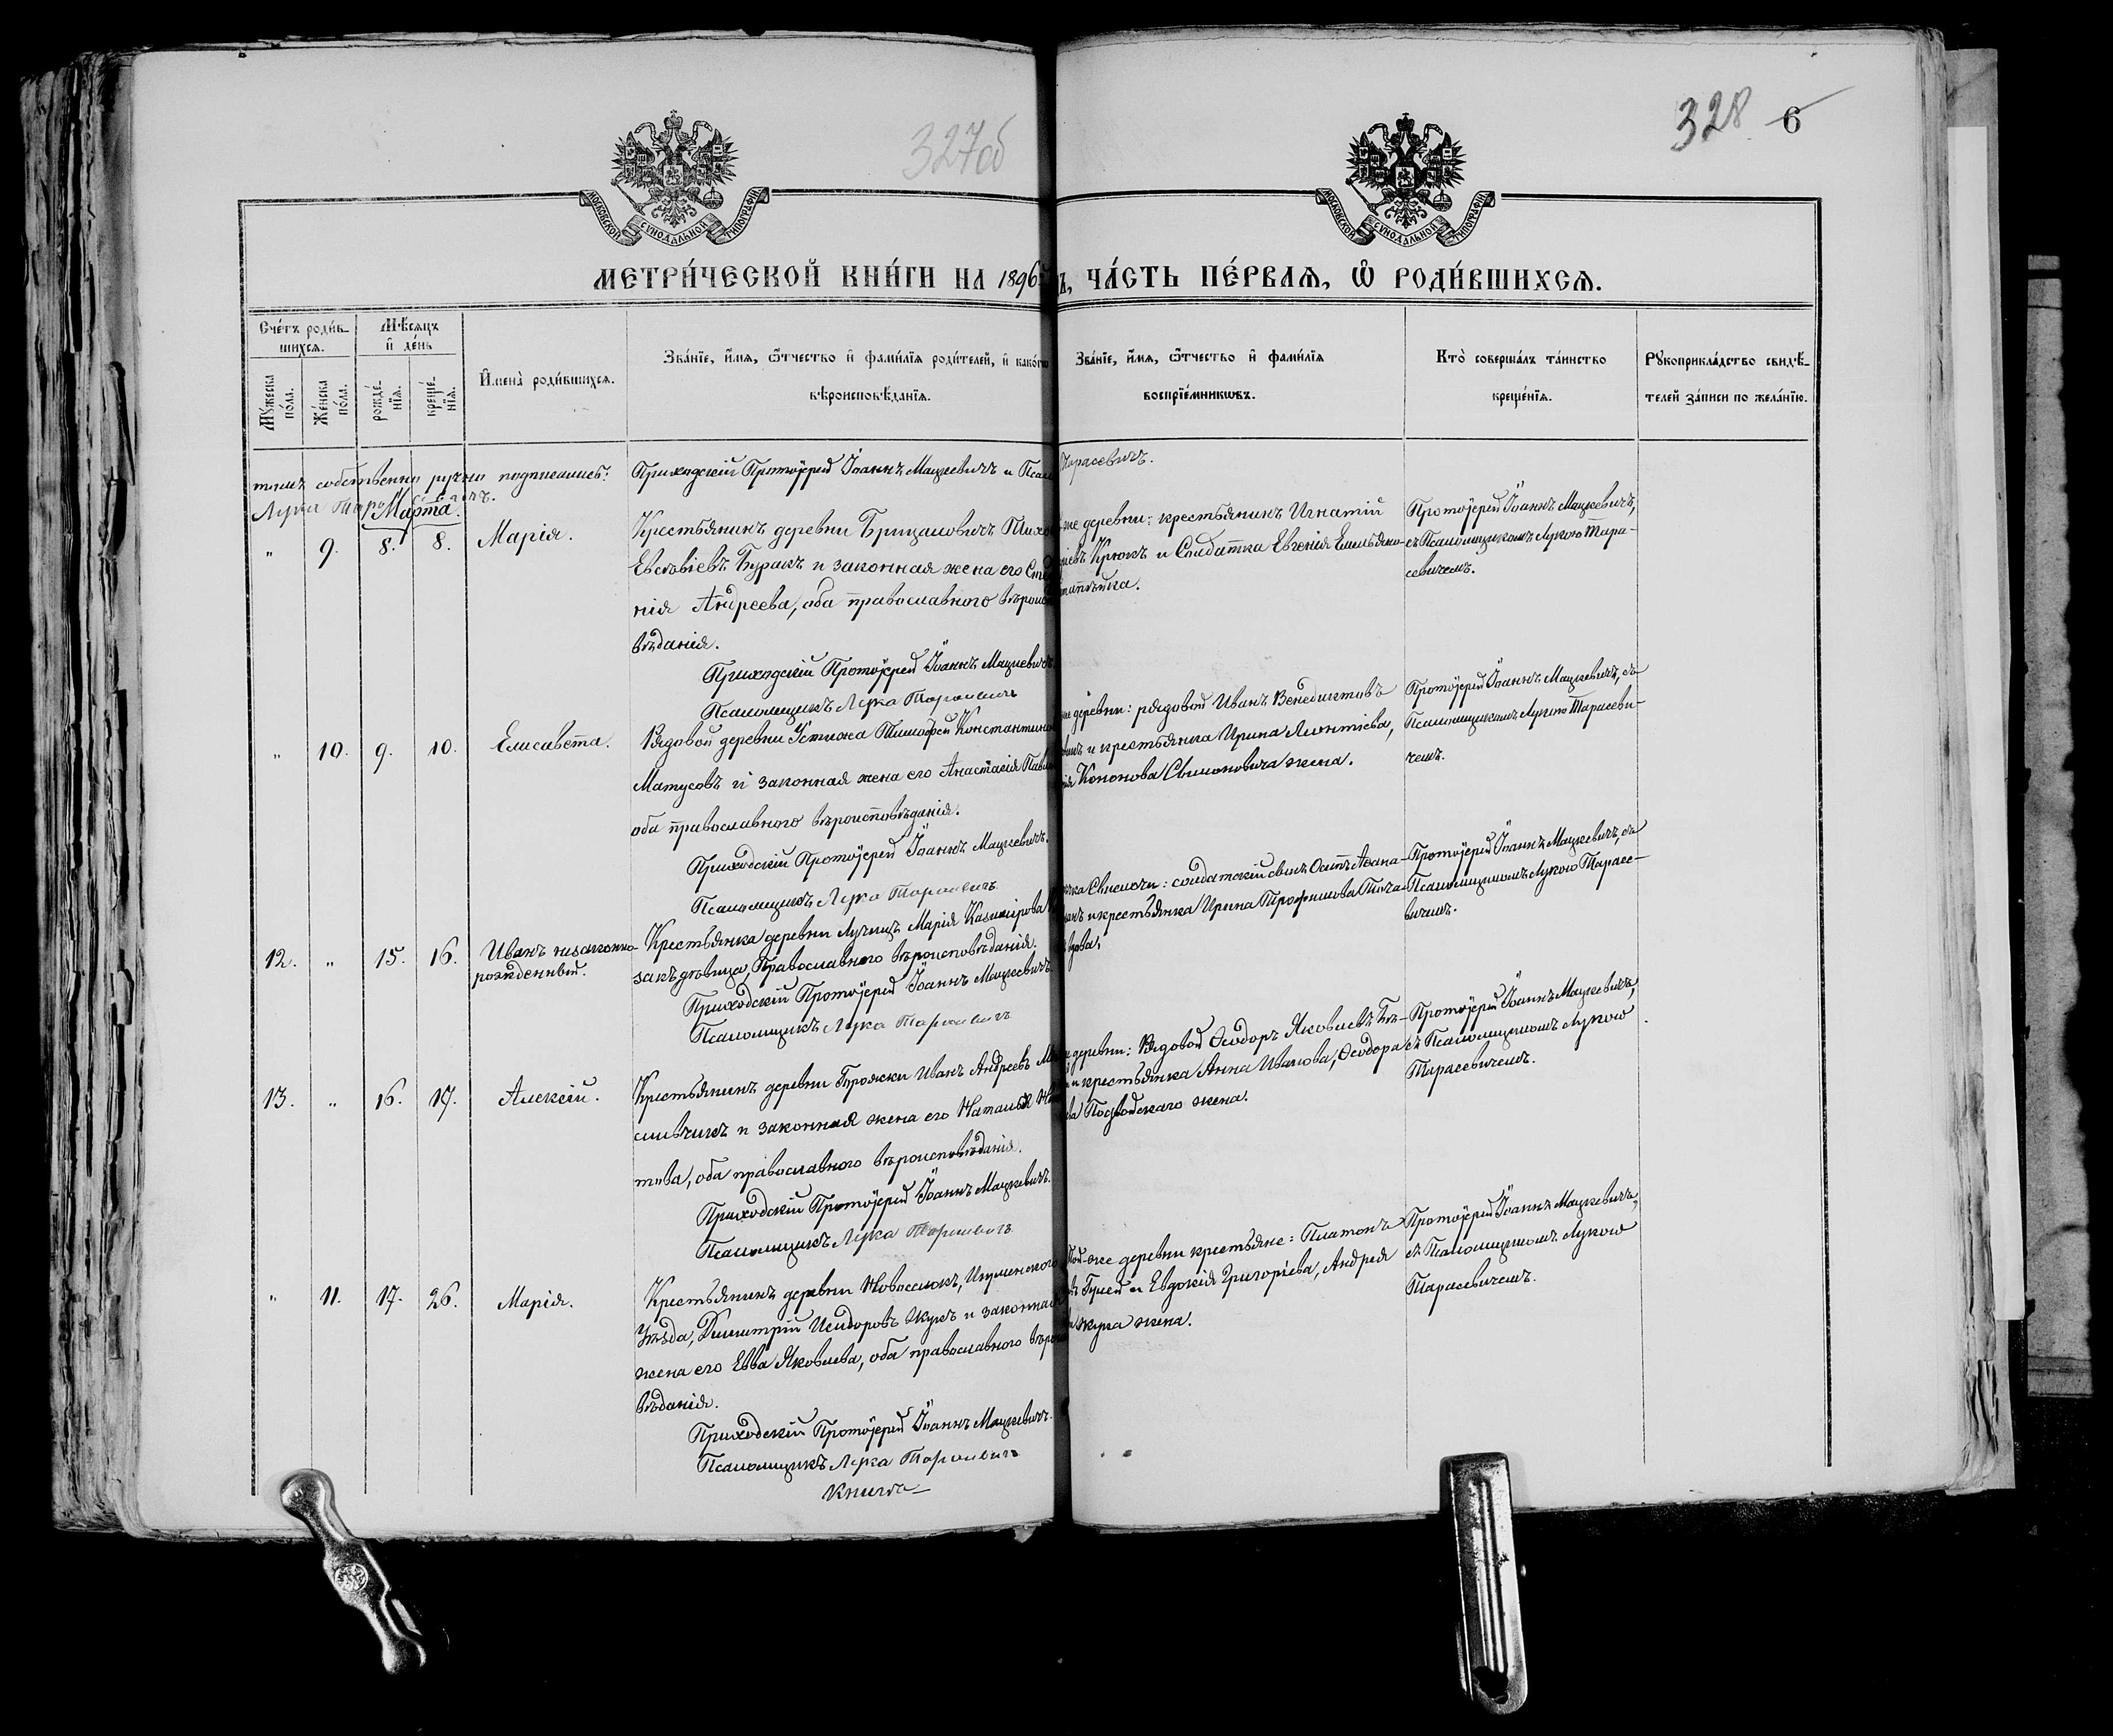 327об
328 6
МОСКОВСКОЙ СУНОДАЛЬНОЙ ТИПОГРАФІИ
МОСКОВСКОЙ СУНОДАЛЬНОЙ ТИПОГРАФІИ
МЕТРИ́ЧЕСКОЙ КНИ́ГИ НА 1896 ЧА́СТЬ ПЕ́РВАѦ, Ѽ РОДИ́ВШИХСѦ.
Сче́тъ роди́в-
шихсѧ.
Мѣ́сѧцъ
и҆ де́нь
Мꙋ́жеска по́ла.
Же́нска по́ла.
рожде́-нїѧ.
креще́-нїѧ.
И҆мена̀ роди́вшихсѧ.
Зва́нїе, и҆́мѧ, ѻ҆́тчество и҆ фами́лїѧ роди́телей, и҆ како́гѡ
вѣроисповѣ́данїѧ.
Зва́нїе, и҆́мѧ, ѻ҆́тчество и҆ фами́лїѧ
воспрїе́мникѡвъ.
Кто̀ соверша́лъ та́инство
креще́нїѧ.
Рꙋкоприкла́дство свидѣ́-
телей за́писи по жела́нїю.
собственно ручно подписались:
Приходскій Протоіерей Іоаннъ Мацкевичъ и Псал
Тарасевичъ.
Лука
Марта.
„ 9. 8. 8. Марія.
Крестьянинъ деревни Брицаловичъ
Евсевіевъ Буракъ и законная жена его Сте
нія Андреева, оба православнаго вѣроиспо
вѣданія.
Приходскій Протоіерей Іоаннъ Мацкевичъ
Псаломщикъ Лука Тарасевичъ
же деревни: крестьянинъ Игнатій
Крюкъ и Солдатка Евгенія Емельяно-
Протоіерей Іоаннъ Мацкевичъ,
съ Псаломщикомъ Лукою Тара-
севичемъ.
„ 10. 9. 10. Елисавета.
Рядовой деревни Устижа Тимоѳей Константинов
Матусовъ и законная жена его Анастасія Павло
оба православнаго вѣроисповѣданія.
Приходскій Протоіерей Іоаннъ Мацкевичъ.
Псаломщикъ Лука Тарасевичъ
же деревни: рядовой Иванъ Венедиктовъ
и крестьянка Ирина Леонтіева,
Кононова Симоновича жена.
Протоіерей Іоаннъ Мацкевичъ, съ
Псаломщикомъ Лукою Тарасеви-
чемъ.
12. „ 15. 16. Иванъ незаконно-
рожденный.
Крестьянка деревни Лучицъ Марія Казимірова
закъ дѣвица, Православнаго вѣроисповѣданія.
Приходскій Протоіерей Іоаннъ Мацкевичъ
Псаломщикъ Лука Тарасевичъ
Свислочи: солдатскій сынъ Осипъ Аѳана-
и крестьянка Ирина Трофимова
Протоіерей Іоаннъ Мацкевичъ, съ
Псаломщикомъ Лукою Тарасе-
вичемъ.
13. „ 16. 17. Алексій.
Крестьянинъ деревни Брожки Иванъ Андреевъ
и законная жена его Наталья
оба православнаго вѣроисповѣданія.
Приходскій Протоіерей Іоаннъ Мацкевичъ.
Псаломщикъ Лука Тарасевичъ
деревни: Рядовой Ѳеодоръ Яковлевъ
и крестьянка Анна Иванова, Ѳеодора
Подводскаго жена.
Протоіерей Іоаннъ Мацкевичъ,
съ Псаломщикомъ Лукою
Тарасевичемъ.
„ 11. 17. 26. Марія.
Крестьянинъ деревни Новоселокъ, Игуменскаго
Уѣзда, Димитрій Исидоровъ Жукъ и законная
жена его Евва Яковлева, оба православнаго вѣроис
вѣданія.
Приходскій Протоіерей Іоаннъ Мацкевичъ.
Псаломщикъ Лука Тарасевичъ
Книга
той-же деревни крестьяне: Платонъ
и Евдокія Григорьева, Андрея
Жука жена.
Протоіерей Іоаннъ Мацкевичъ,
съ Псаломщикомъ Лукою
Тарасевичемъ.